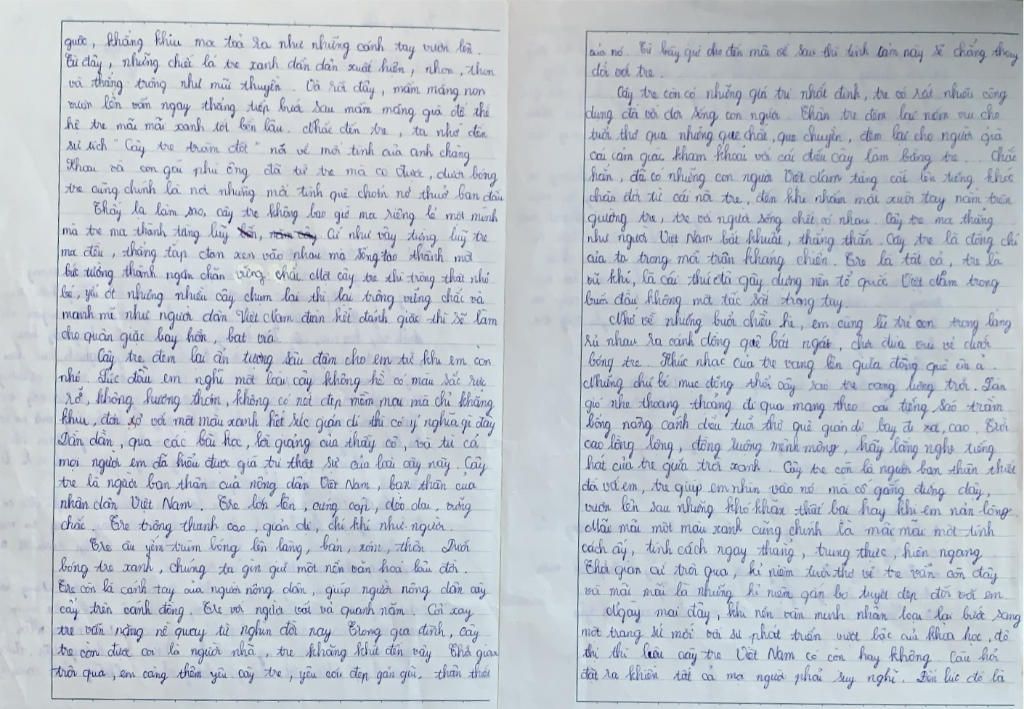 guốc, khẳng khiu mà toả ra như những cánh tay vươn lên.
Từ đây, những chiếc lá tre xanh dần dần xuất hiện, nhọn, thon
và thẳng trông như mũi thuyền. Và rồi đây, mầm măng non
vươn lên vẫn ngay thẳng tiếp bước sau mầm măng già để thế
hệ tre mãi mãi xanh tốt bền lâu. Nhắc đến tre, ta nhớ đến
sự tích "Cây tre trăm đốt" nói về mối tình của anh chàng
Khoai và con gái phú ông đã từ tre mà có được, dưới bóng
tre cũng chính là nơi những mối tình quê chớm nở thuở ban đầu
Thấy lạ làm sao, cây tre không bao giờ mọc riêng lẻ một mình
mà tre mọc thành từng luỹ Cứ như vậy từng luỹ tre
mọc đều, thẳng tắp đan xen vào nhau mà sống tạo thành một
bức tường thành ngăn chặn vững chãi. Một cây tre thì trông thật nhỏ
bé, yếu ớt nhưng nhiều cây chụm lại thì lại trông vững chắc và
mạnh mẽ như người dân Việt Nam đoàn kết đánh giặc thì sẽ làm
cho quân giặc bay hồn, bạt vía.
Cây tre đem lại ấn tượng sâu đậm cho em từ khi em còn
nhỏ. Lúc đầu em nghĩ một loài cây không hề có màu sắc rực
rỡ, không hương thơm, không có nét đẹp mềm mại mà chỉ khẳng
khiu, đồ sộ với một màu xanh hết sức giản dị thì có ý nghĩa gì đây
Dần dần, qua các bài học, lời giảng của thầy cô, và từ cả
mọi người em đã hiểu được giá trị thật sự của loài cây này. Cây
tre là người bạn thân của nông dân Việt Nam, bạn thân của
nhân dân Việt Nam. Tre lớn lên, cứng cáp, dẻo dai, vững
chắc. Tre trông thanh cao, giản dị, chí khí như người.
Tre âu yếm trùm bóng lên làng, bản, xóm, thôn. Dưới
bóng tre xanh, chúng ta gìn giữ một nền văn hoá lâu đời.
Tre còn là cánh tay của người nông dân, giúp người nông dân cày
cấy trên cánh đồng. Tre với người vất vả quanh năm. Cối xay
tre vẫn nặng nề quay từ nghìn đời nay. Trong gia đình, cây
tre còn được coi là người nhà, tre khăng khít đến vậy. Thời gian
trôi qua, em càng thêm yêu cây tre, yêu cái đẹp gần gũi, thân thiết
của nó. Từ bây giờ cho đến mãi về sau thì tình cảm này sẽ chẳng thay
đổi với tre.
Cây tre còn có những giá trị nhất định, tre có rất nhiều công
dụng đối với đời sống con người. Thân tre đem lại niềm vui cho
tuổi thơ qua những que chắt, que chuyền, đem lại cho người già
cái cảm giác khoan khoái với cái điếu cày làm bằng tre. Chắc
hẳn, đã có những con người Việt Nam từng cất lên tiếng khóc
chào đời từ cái nôi tre, đến khi nhắm mắt xuôi tay nằm trên
giường tre, tre và người sống chết có nhau. Cây tre mọc thẳng
như người Việt Nam bất khuất, thẳng thắn. Cây tre là đồng chí
của ta trong mọi trận kháng chiến. Tre là tất cả, tre là
vũ khí, là cái thứ đã gây dựng nên tổ quốc Việt Nam trong
bước đầu không một tấc sắt trong tay.
Nhớ về những buổi chiều hè, em cùng lũ trẻ con trong làng
rủ nhau ra cánh đồng quê bát ngát, chơi đùa vui vẻ dưới
bóng tre. Khúc nhạc của tre vang lên giữa đồng quê êm ả.
Những chú bé mục đồng thổi cây sáo tre vang lưng trời. Làn
gió nhẹ thoang thoảng đi qua mang theo cái tiếng sáo trầm
bổng nâng cánh diều tuổi thơ quê giản dị bay đi xa, cao. Trời
cao lồng lộng, đồng ruộng mênh mông, hãy lắng nghe tiếng
hát của tre giữa trời xanh. Cây tre còn là người bạn thân thiết
đối với em, tre giúp em nhìn vào nó mà cố gắng đứng dậy,
vươn lên sau những khó khăn thất bại hay khi em nản lòng.
Mãi mãi một màu xanh cũng chính là mãi mãi một tính
cách ấy, tính cách ngay thẳng, trung thực, hiên ngang
Thời gian cứ trôi qua, kỉ niệm tuổi thơ về tre vẫn còn đây
và mãi mãi là những kỉ niệm gắn bó tuyệt đẹp đối với em
Ngày mai đây, khi nền văn minh nhân loại lại bước sang
một trang sử mới với sự phát triển vượt bậc của khoa học, đô
thị thì liệu cây tre Việt Nam có còn hay không. Câu hỏi
đặt ra khiến tất cả mọi người phải suy nghĩ. Đến lúc đó là